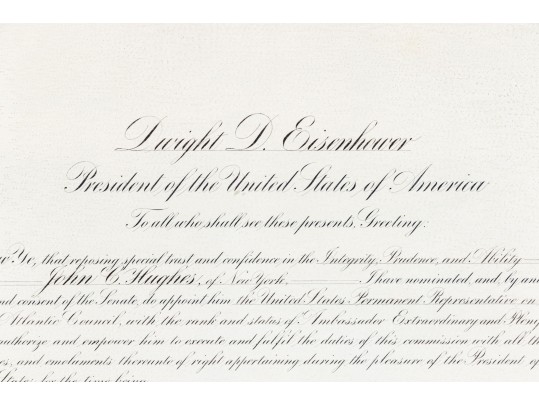 Dwight D. Eisenhower
President of the United States of America
To all who shall see these presents, Greeting:
Ye, that reposing special trust and confidence in the Integrity, Prudence, and Ability
John C. Hughes, of New York, I have nominated, and, by and
consent of the Senate, do appoint him the United States Permanent Representative on
Atlantic Council, with the rank and status of Ambassador Extraordinary and
authorize and empower him to execute and fulfil the duties of this commission with all
and emoluments thereunto of right appertaining during the pleasure of the President of
States for the time being